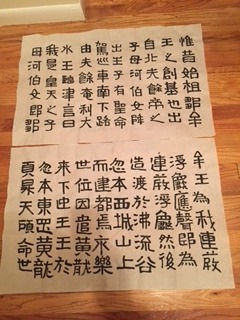 惟昔始祖鄒牟
王之創基也出
自北夫餘帝之
子母河伯女降
出王子有聖命
駕巡車南下路
由夫餘奄利大
水王臨津言曰
我是皇天之子
母河伯女郎鄒
牟王為我連葭
浮龜應聲即為
連葭浮龜然後
造渡於沸流谷
忽本西城山上
而建都焉永樂
世位因遣黃龍
來下迎王王於
忽本東罡黃龍
頁昇天顧命世